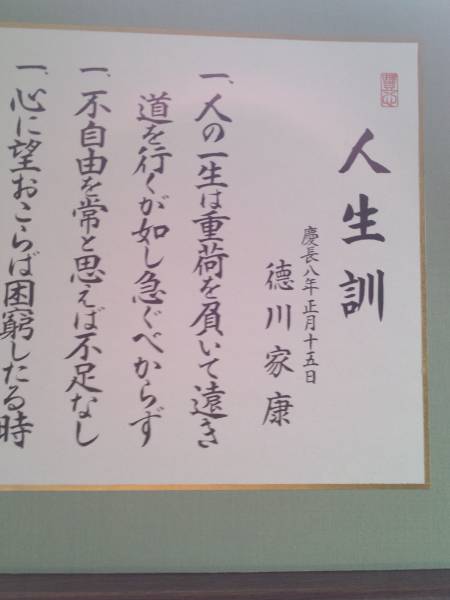 人生訓
慶長八年正月十五日
徳川家康
一、人の一生は重荷を負いて遠き
道を行くが如し急ぐべからず
一、不自由を常と思えば不足なし
一、心に望おこらば困窮したる時